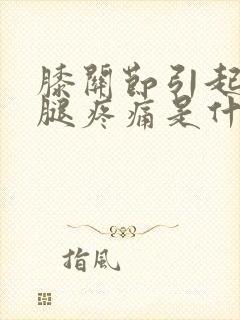 膝關節引起
腿疼痛是什
指風